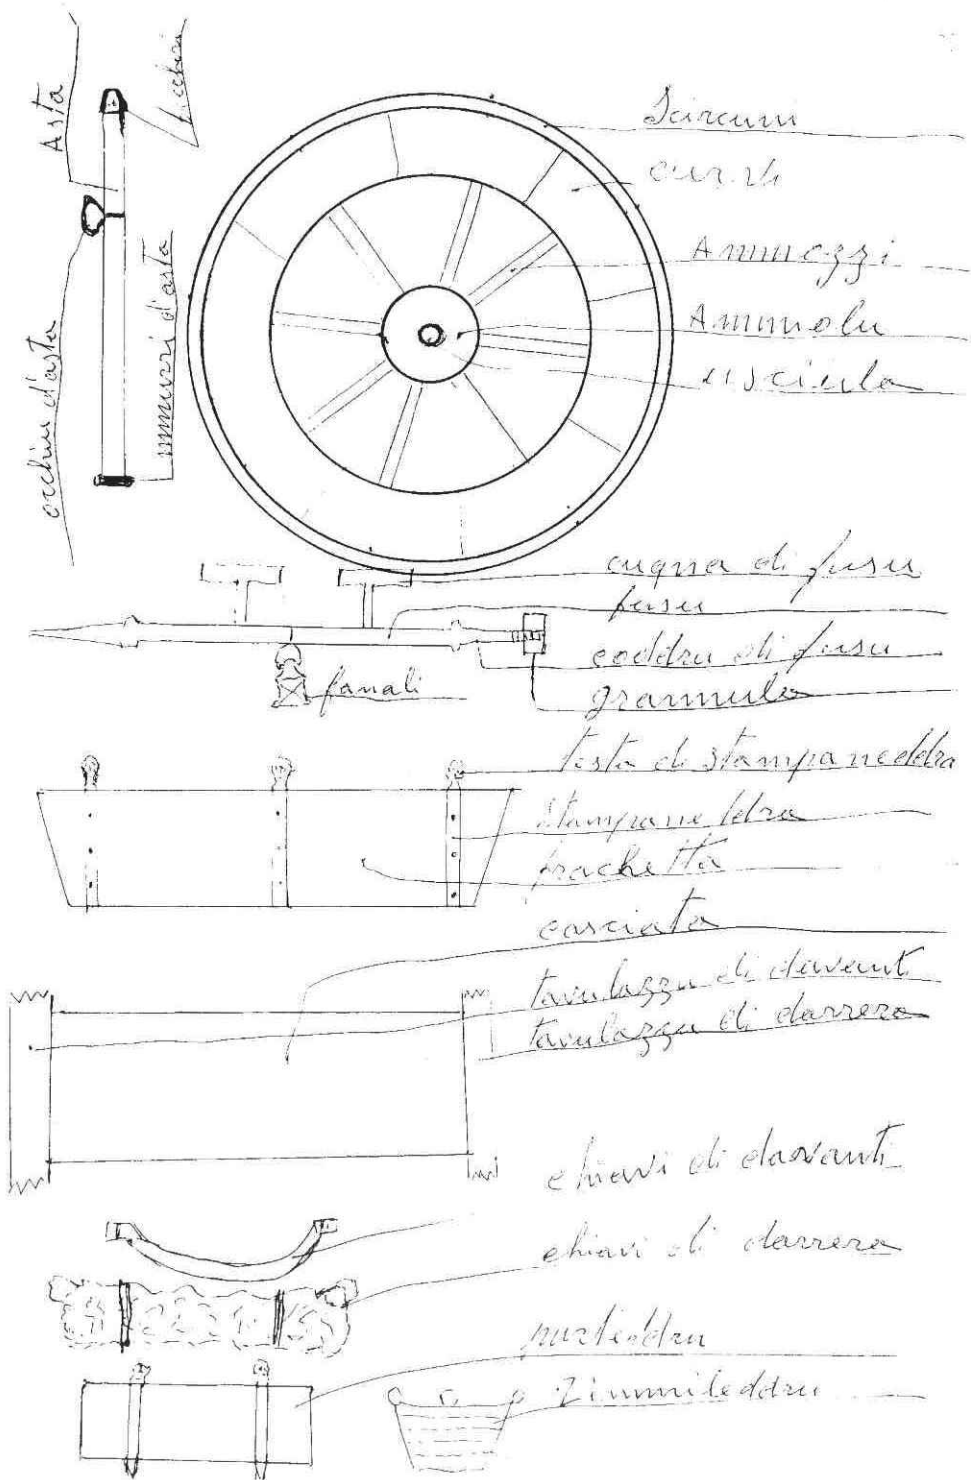 Asta
occhiu d'asta
mmuzzi d'asta
Scircuni
curvi
Ammozzi
Ammolu
usciula
cugna di fusu
fusu
coddru di fusu
fanali
grammula
testa di stampaneddra
stampaneddra
frachetta
casciata
tavulazzu di davanti
tavulazzu di darrera
chiavi di davanti
chiavi di darrera
purteddru
Zimmileddru